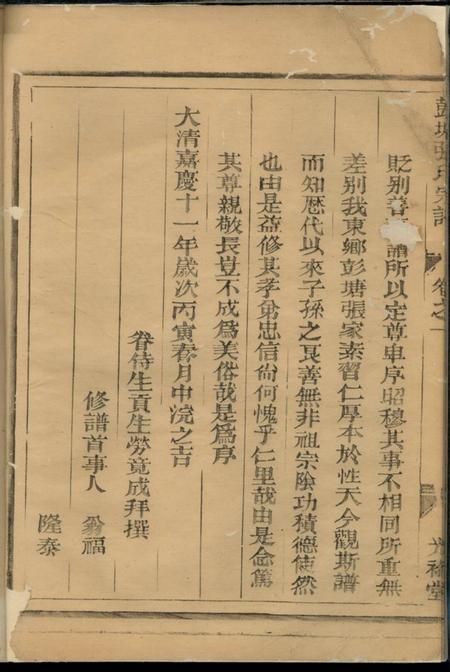 彭塘張氏宗譜 卷之一 光裕堂
貶別善譜所以定尊卑序昭穆其事不相同所重無
差別我東鄉彭塘張家素習仁厚本於性天今觀斯譜
而知歷代以來子孫之良善無非祖宗陰功積德使然
也由是益修其孝弟忠信尚何愧乎仁里哉由是念篤
其尊親敬長豈不成為美俗哉是為序
大清嘉慶十一年歲次丙寅春月中浣之吉
眷侍生貢生勞竟成拜撰
修譜首事人 翁福
隆泰